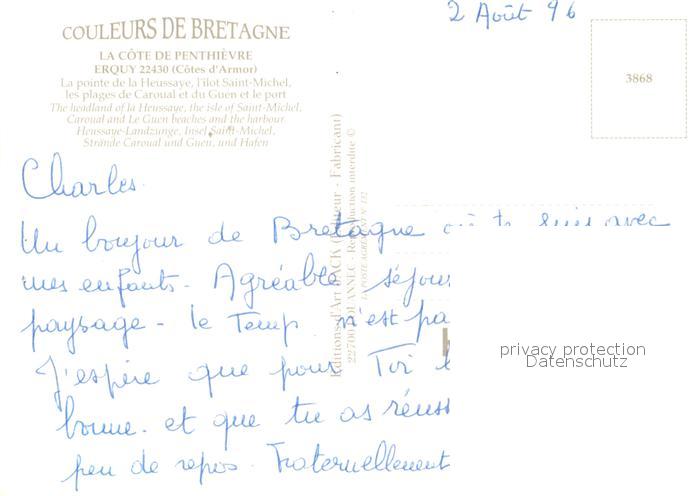 2 Août 96
COULEURS DE BRETAGNE
LA CÔTE DE PENTHIÈVRE
ERQUY 22430 (Côtes d'Armor)
La pointe de la Heussaye, l'îlot Saint-Michel,
les plages de Caroual et du Guen et le port
The headland of la Heussaye, the isle of Saint-Michel,
Caroual and Le Guen beaches and the harbour
Heussaye-Landzunge, Insel Saint-Michel,
Strände Caroual und Guen, und Hafen
3868
Charles.
Un bonjour de Bretagne où je suis avec
mes enfants - Agréable séjour
paysage - le Temp n'est pa
J'espère que pour Toi
bonne. et que tu as réuss
peu de repos. Fraternellement
Editions d'Art JACK (Editeur - Fabricant)
22700 LOUANNEC - Reproduction interdite ©
privacy protection
Datenschutz